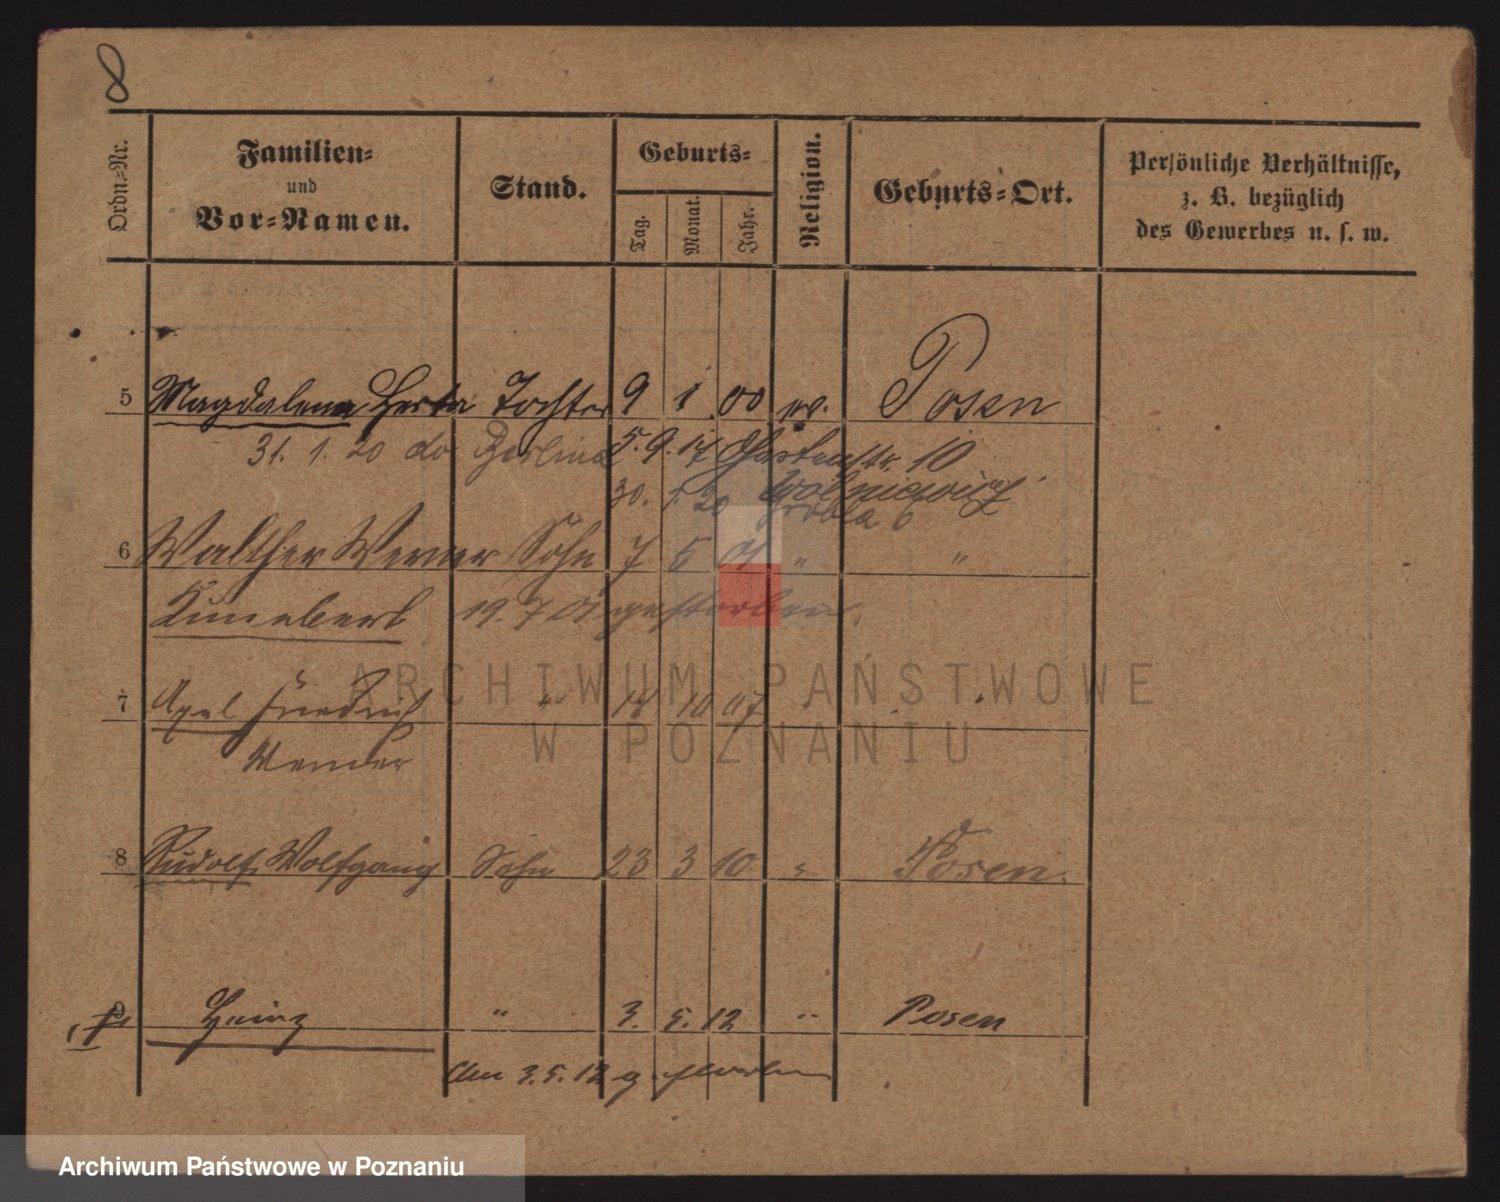 8
Ordn.-Nr.
Familien-
und
Vor-Namen.
Stand.
Geburts-
Tag.
Monat.
Jahr.
Religion.
Geburts-Ort.
Persönliche Verhältnisse,
z. B. bezüglich
des Gewerbes u. s. w.
5 Magdalena Herta Tochter 9 1 00 ev. Posen
31. 1. 20 do Berlina 5. 9. 17 10
30. 1. 20
Grobla 6
6 Walther Werner Sohn 7 5 01 " "
19. 7 01 gestorben.
7 Axel Friedrich " 18 10 07 " "
Werner
8 Rudolf Wolfgang Sohn 23 3 10 " Posen.
9 Heinz " 3. 5. 12 " Posen
den 3. 5. 12 gestorben
ARCHIWUM PAŃSTWOWE
W POZNANIU
Archiwum Państwowe w Poznaniu